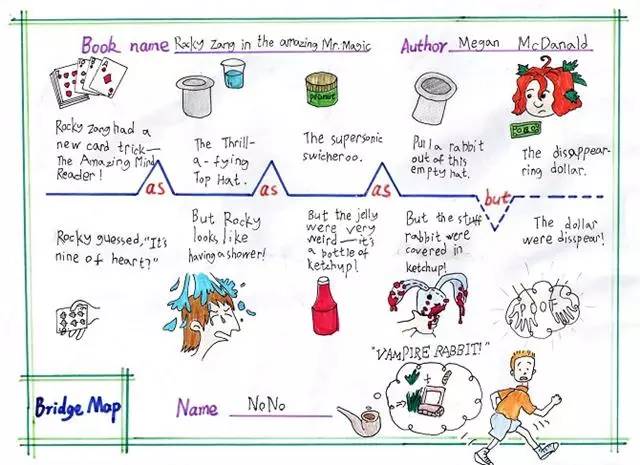 Book name Rocky Zang in the amazing Mr. Magic Author Megan McDanald
Rocky Zang had a
new card trick—
The Amazing Mind
Reader!
The Thrill-
a-fying
Top Hat.
The supersonic
swicheroo.
Pull a rabbit
out of this
empty hat.
The disappear-
ring dollar.
as as as but
Rocky guessed, "It's
nine of heart?"
But Rocky
looks like
having a shower!
But the jelly
were very
weird—it's
a bottle of
ketchup!
But the stuff
rabbit were
covered in
ketchup!
The dollar
were disspear!
SPOOFS
"VAMPIRE RABBIT!"
Bridge Map
Name NoNo